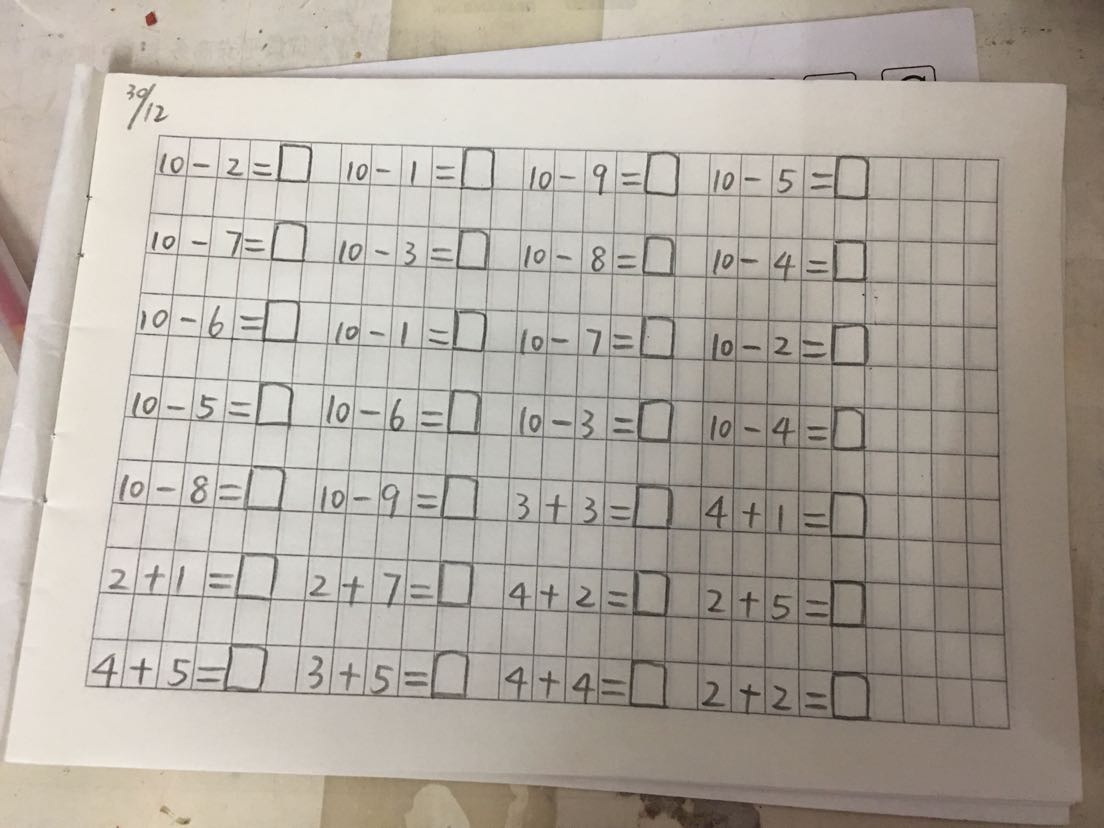 30/12
10 - 2 = □ 10 - 1 = □ 10 - 9 = □ 10 - 5 = □
10 - 7 = □ 10 - 3 = □ 10 - 8 = □ 10 - 4 = □
10 - 6 = □ 10 - 1 = □ 10 - 7 = □ 10 - 2 = □
10 - 5 = □ 10 - 6 = □ 10 - 3 = □ 10 - 4 = □
10 - 8 = □ 10 - 9 = □ 3 + 3 = □ 4 + 1 = □
2 + 1 = □ 2 + 7 = □ 4 + 2 = □ 2 + 5 = □
4 + 5 = □ 3 + 5 = □ 4 + 4 = □ 2 + 2 = □